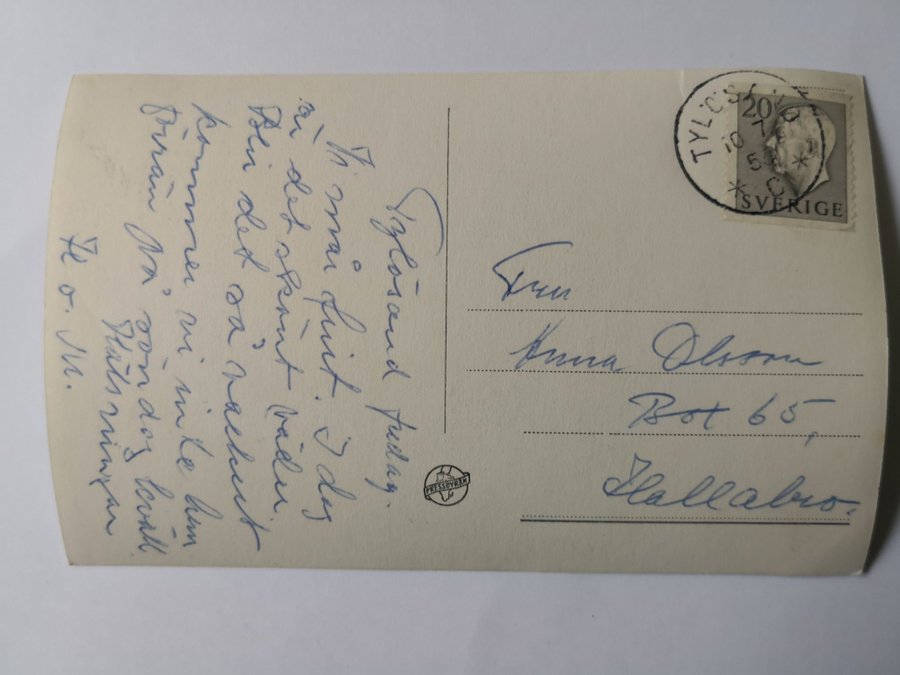 Tylösand fredag.
Vi må fint. I dag
är det skönt väder
Blir det så vackert
kommer vi inte hem
förrän på söndag kväll.
Hälsningar
H o. M.
TYLÖSAND
10 7
5
* C *
20
SVERIGE
Fru
Anna Olsson
Box 65,
Hallabro.
PRESSBYRÅN